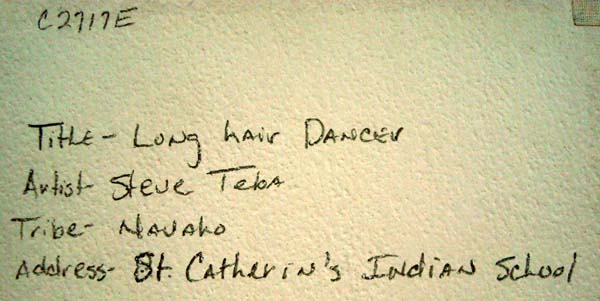 C2717E
Title- Long hair Dancer
Artist- Steve Teba
Tribe- Navaho
Address- St. Catherin's Indian School